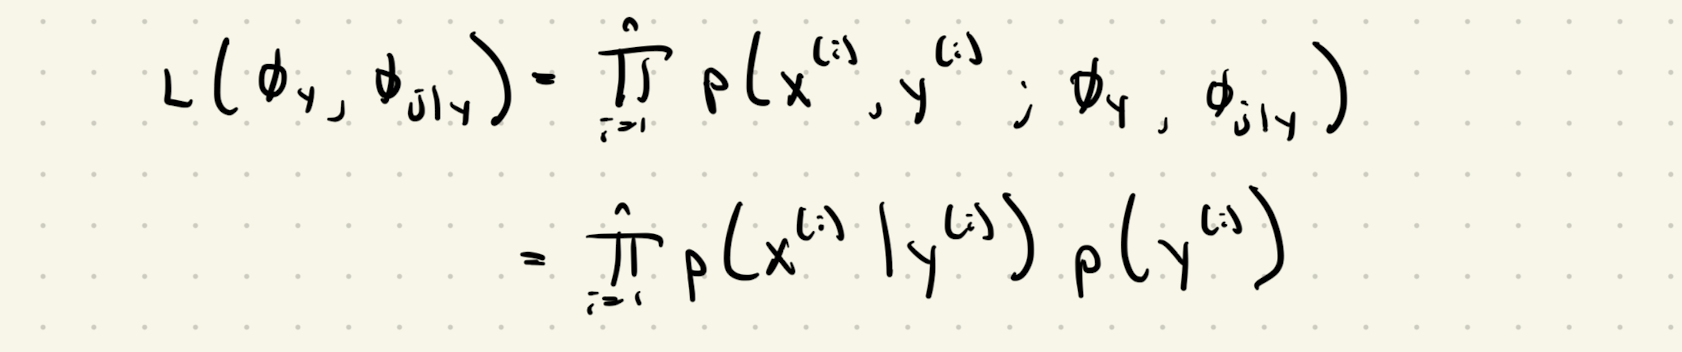 L(ϕ_y, ϕ_{j|y}) = ∏_{i=1}^{n} p(x^{(i)}, y^{(i)}; ϕ_y, ϕ_{j|y})
= ∏_{i=1}^{n} p(x^{(i)} | y^{(i)}) p(y^{(i)})